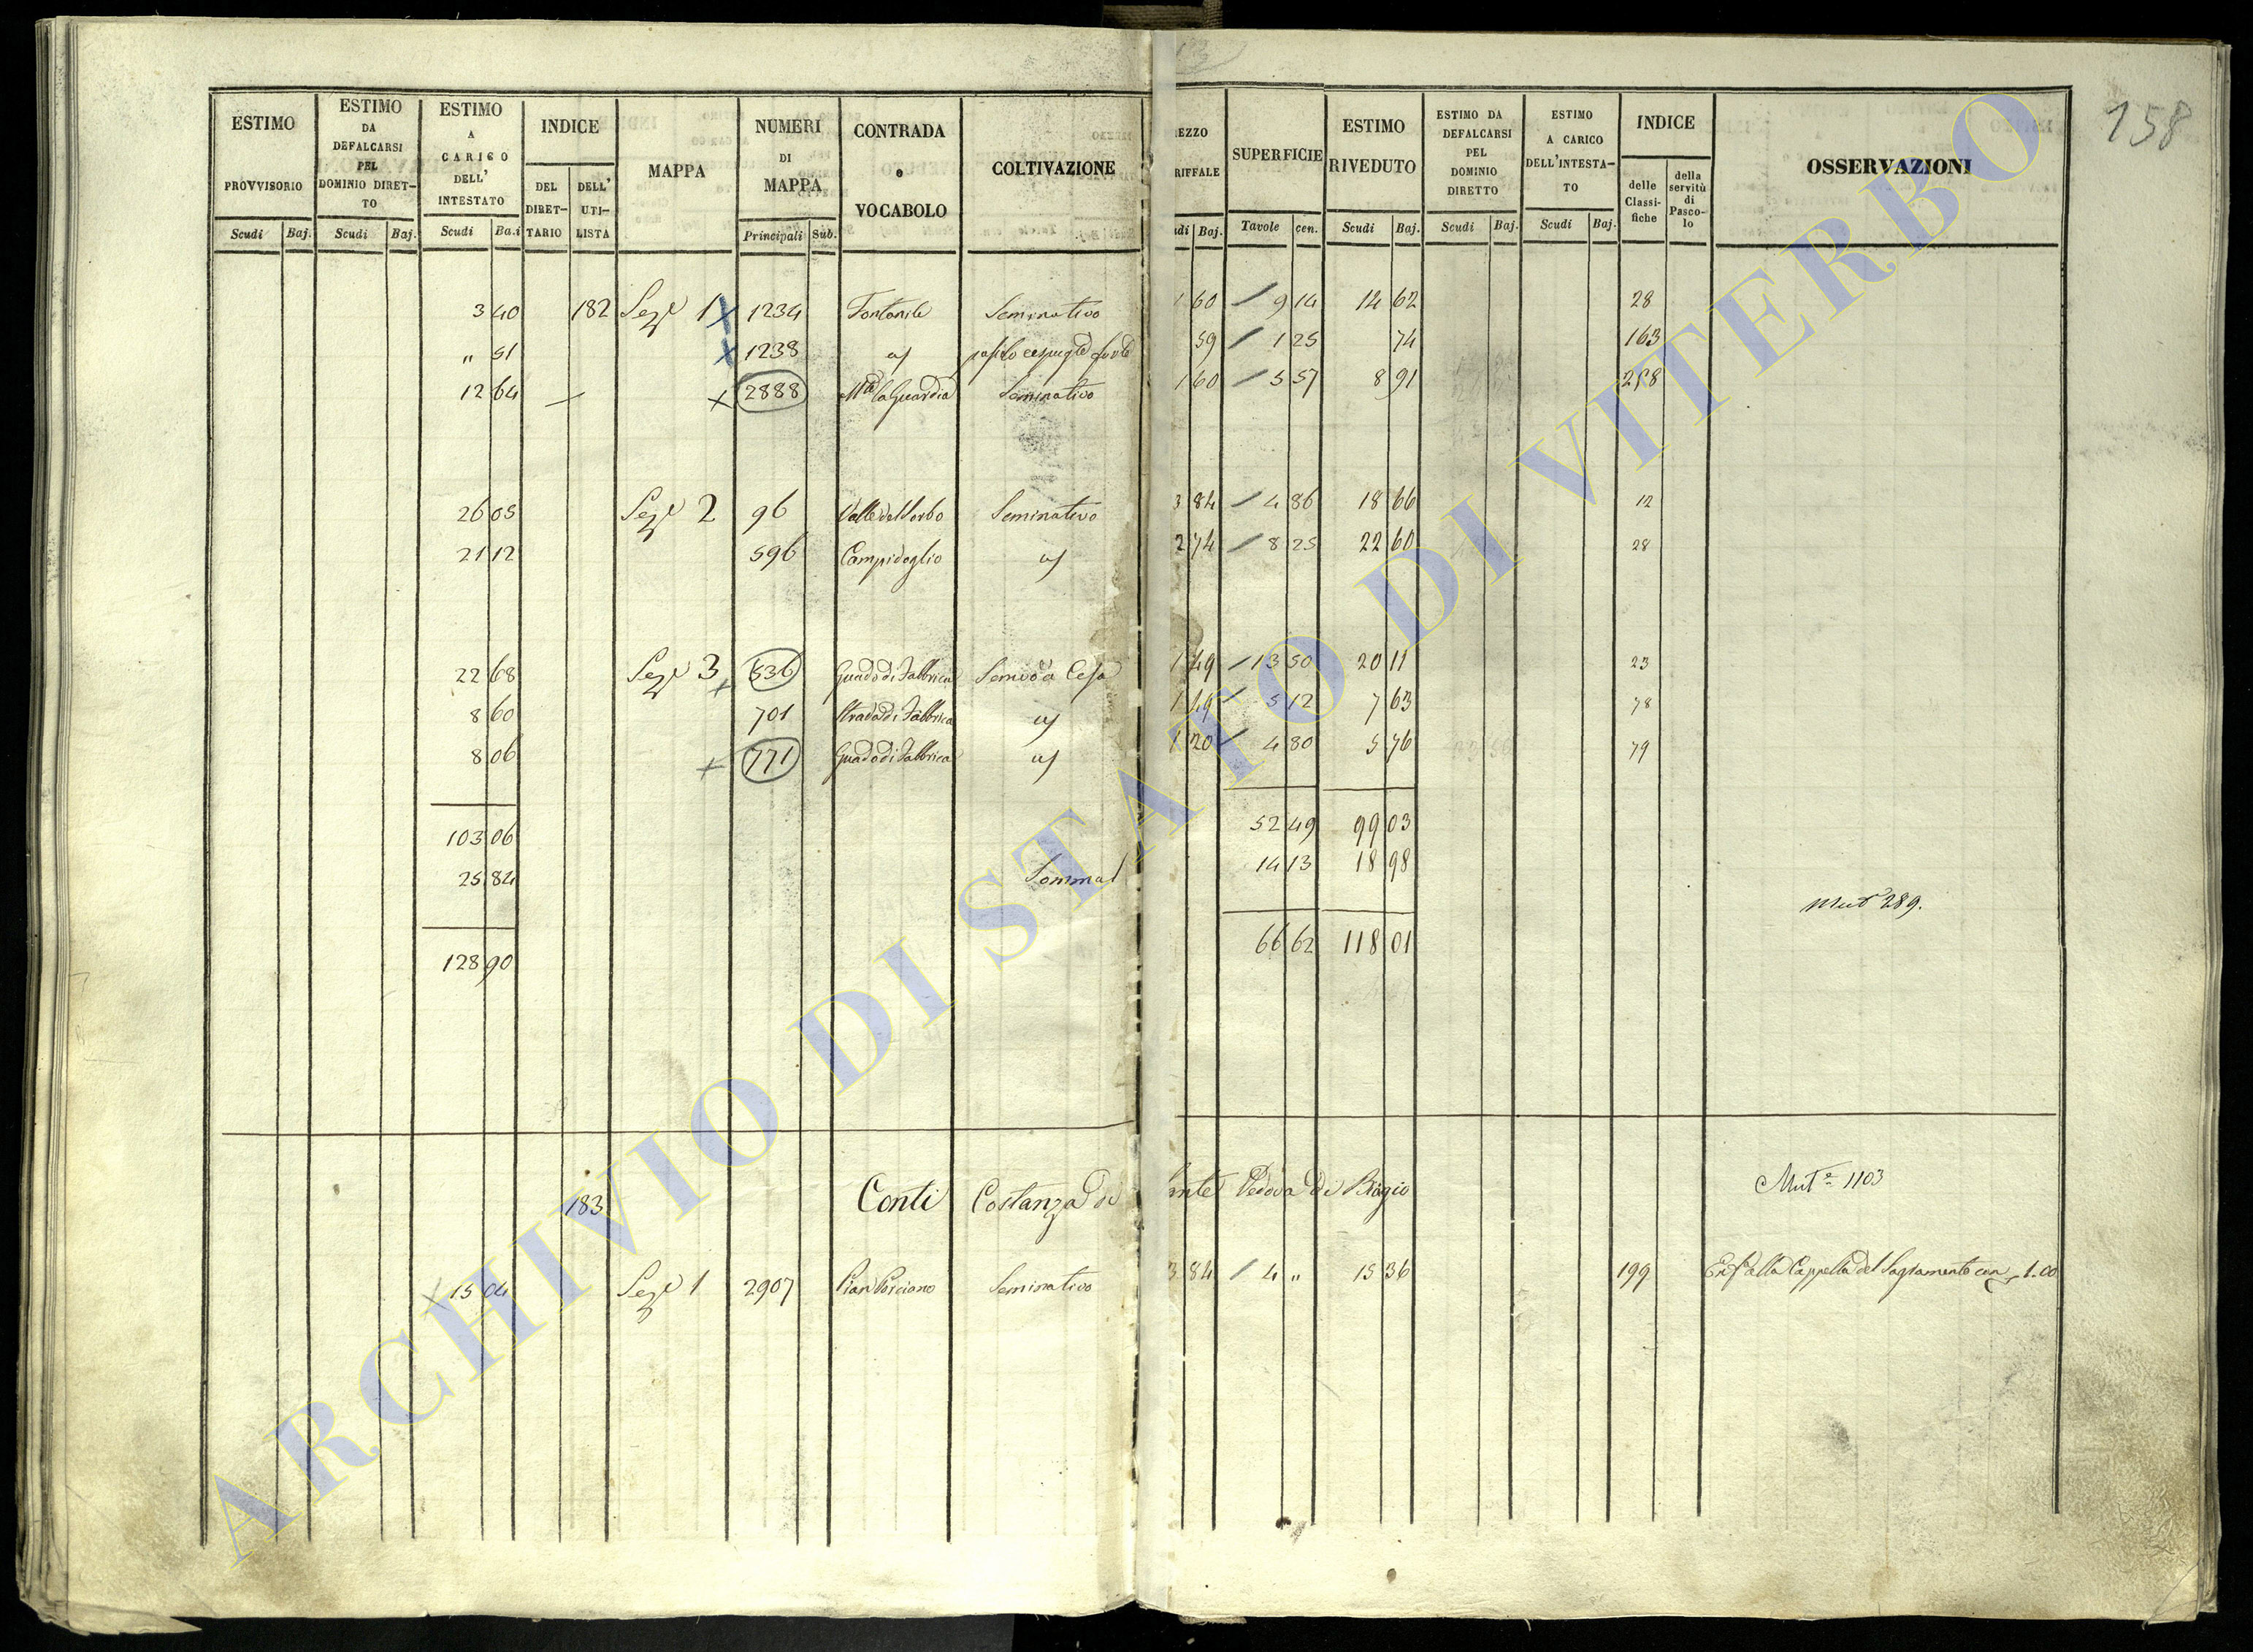 158
ESTIMO PROVVISORIO
Scudi Baj.
ESTIMO DA DEFALCARSI PEL DOMINIO DIRET-TO
Scudi Baj.
ESTIMO A CARICO DELL' INTESTATO
Scudi Ba.i
INDICE
DEL DIRET-TARIO
DELL' UTI-LISTA
MAPPA
NUMERI DI MAPPA
Principali Sub.
CONTRADA e VOCABOLO
COLTIVAZIONE
EZZO RIFFALE
udi Baj.
SUPERFICIE
Tavole cen.
ESTIMO RIVEDUTO
Scudi Baj.
ESTIMO DA DEFALCARSI PEL DOMINIO DIRETTO
Scudi Baj.
ESTIMO A CARICO DELL'INTESTA-TO
Scudi Baj.
INDICE
delle Classi-fiche
della servitù di Pasco-lo
OSSERVAZIONI
3 40 182 Sez.e 1 X 1234 Fontanile Seminativo 1 60 / 9 14 14 62 28
" 51 X 1238 59 / 1 25 74 163
12 64 — X 2888 Mad la Guardia Seminativo 1 60 / 5 57 8 91 258
26 05 Sez.e 2 96 Valle del Sorbo Seminativo 3 84 / 4 86 18 66 12
21 12 596 Campidoglio 2 74 / 8 25 22 60 28
22 68 Sez.e 3 + 536 Guado di Fabbrica Semivo a Cesa 1 49 / 13 50 20 11 23
8 60 701 Strada di Fabbrica 1 49 / 5 12 7 63 78
8 06 + 771 Guado di Fabbrica 1 20 / 4 80 5 76 79
103 06 52 49 99 03
25 84 Somma 14 13 18 98
Mut 289.
128 90 66 62 118 01
183 Conti Costanza di ante Vedova di Biagio Mut.e 1103
X 15 04 Sez.e 1 2907 Pian Porciano Seminativo 3 84 / 4 " 15 36 199 alla Cappella del Sagramento 1.00
ARCHIVIO DI STATO DI VITERBO